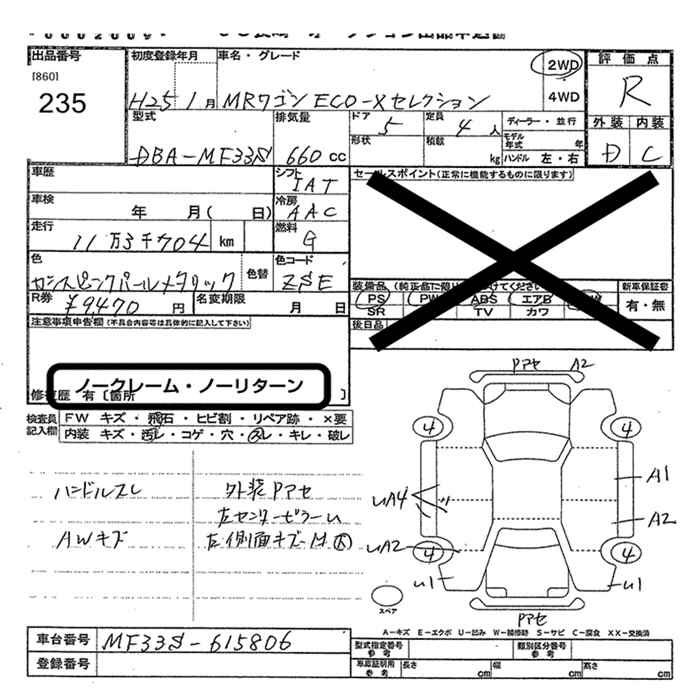 出品番号
[860]
235
初度登録年月
H25 1月
車名・グレード
MRワゴン ECO-Xセレクション
2WD
4WD
評価点
R
外装 内装
D C
型式
DBA-MF33S
排気量
660 cc
ドア
5
定員
4 人
形状
積載
kg
ディーラー・並行
モデル年式 年
ハンドル 左・右
車歴
シフト
IAT
車検
年 月( 日)
冷房
AAC
走行
11万3千704 km
燃料
G
色
カシスピンクパールメタリック
色替
色コード
ZSE
R券
¥9470 円
名変期限
月 日
セールスポイント(正常に機能するものに限ります)
装備品
PS PW ABS エアB
SR TV カワ
新車保証書
有・無
後日品
注意事項申告欄 (不具合内容等は具体的に記入して下さい)
ノークレーム・ノーリターン
修復歴 有 〔箇所 〕
検査員記入欄
FW キズ・飛石・ヒビ割・リペア跡・×要
内装 キズ・汚レ・コゲ・穴・スレ・キレ・破レ
ハンドルスレ
AWキズ
外装Pアセ
左センターピラーU
左側面キズ・凹 大
Pアセ A2
4 4
UA4
A1
A2
UA2
4 4
U1 U1
スペア
Pアセ
A-キズ E-エクボ U-凹み W-補修跡 S-サビ C-腐食 XX-交換済
車台番号
MF33S-615806
登録番号
型式指定番号 参考
類別区分番号 参考
車庫証明用 参考
長さ cm
幅 cm
高さ cm